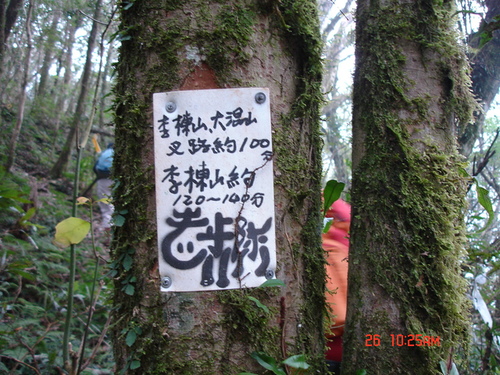 李棟山、大混山
叉路約100分
李棟山約
120~140分
26 10:25AM